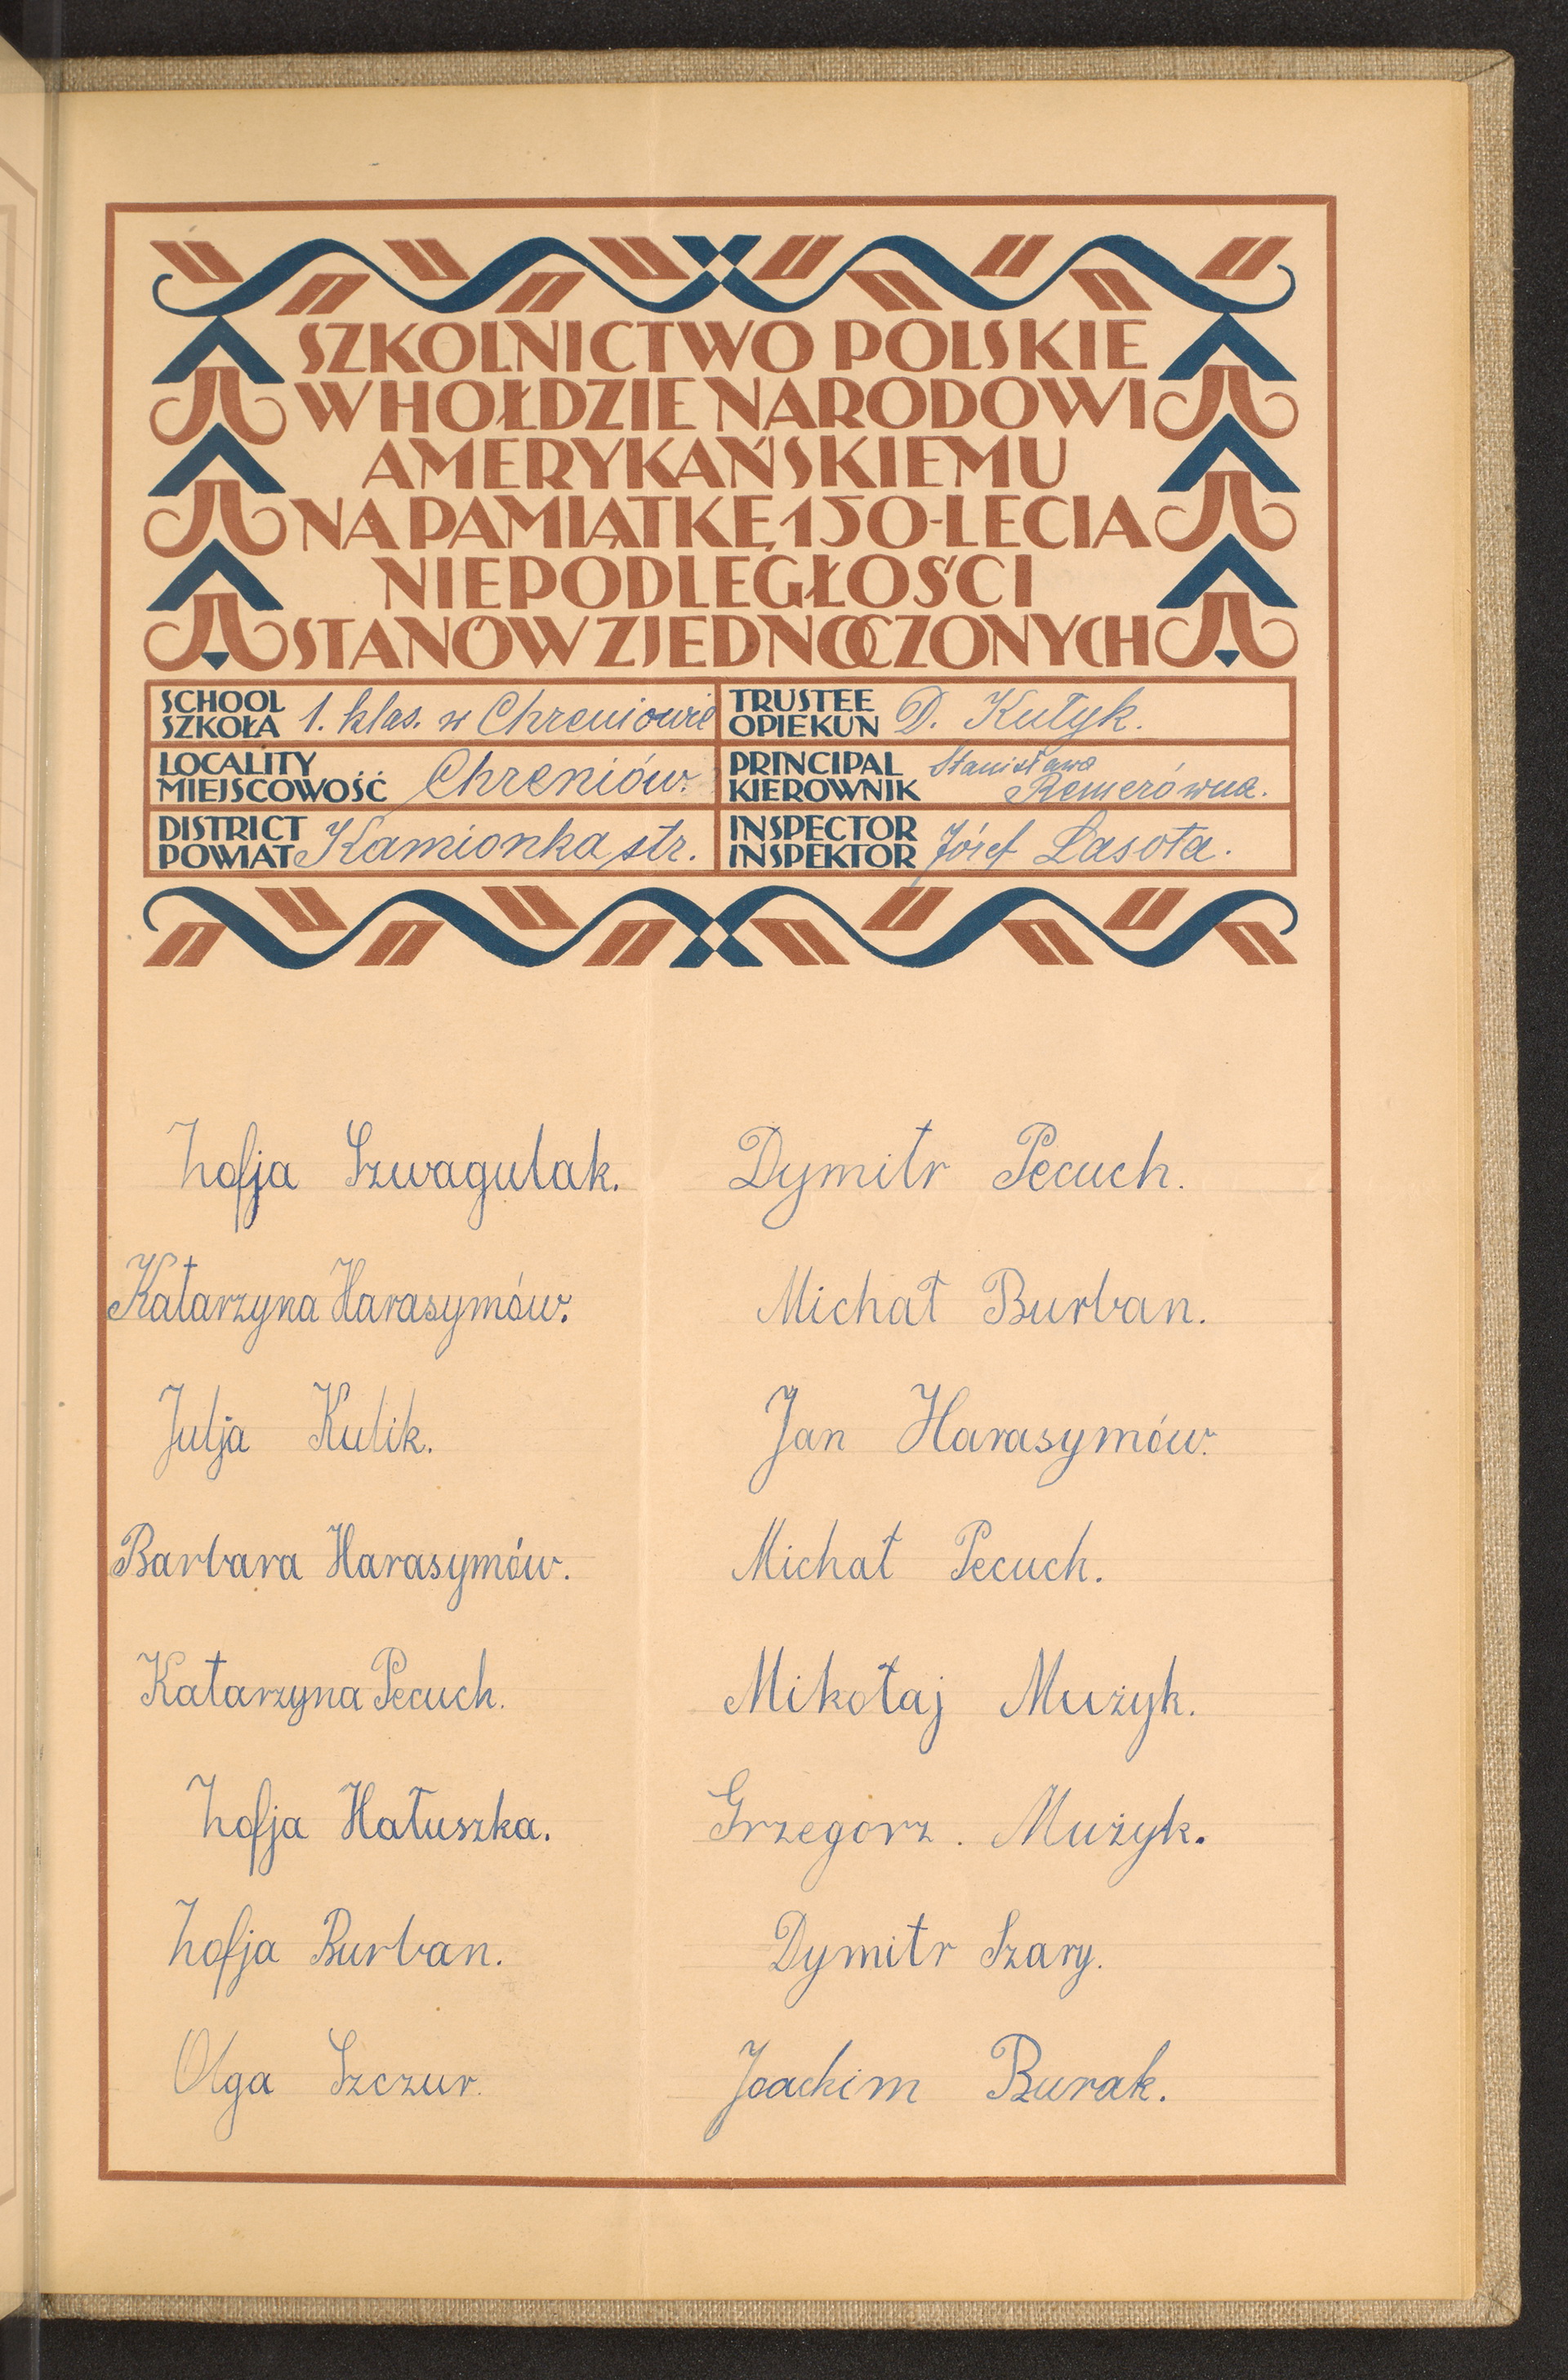 SZKOLNICTWO POLSKIE
W HOŁDZIE NARODOWI
AMERYKAŃSKIEMU
NA PAMIĄTKĘ 150-LECIA
NIEPODLEGŁOŚCI
STANÓW ZJEDNOCZONYCH
SCHOOL
SZKOŁA 1. klas. w Chreniowie
TRUSTEE
OPIEKUN D. Kułyk.
LOCALITY
MIEJSCOWOŚĆ Chreniów.
PRINCIPAL Stanisława
KIEROWNIK Remerówna.
DISTRICT
POWIAT Kamionka str.
INSPECTOR
INSPEKTOR Józef Lasota.
Zofja Szwagulak.
Katarzyna Harasymów.
Julja Kulik.
Barbara Harasymów.
Katarzyna Pecuch.
Zofja Hałuszka.
Zofja Burban.
Olga Szczur.
Dymitr Pecuch.
Michał Burban.
Jan Harasymów.
Michał Pecuch.
Mikołaj Mużyk.
Grzegorz. Mużyk.
Dymitr Szary.
Joachim Burak.